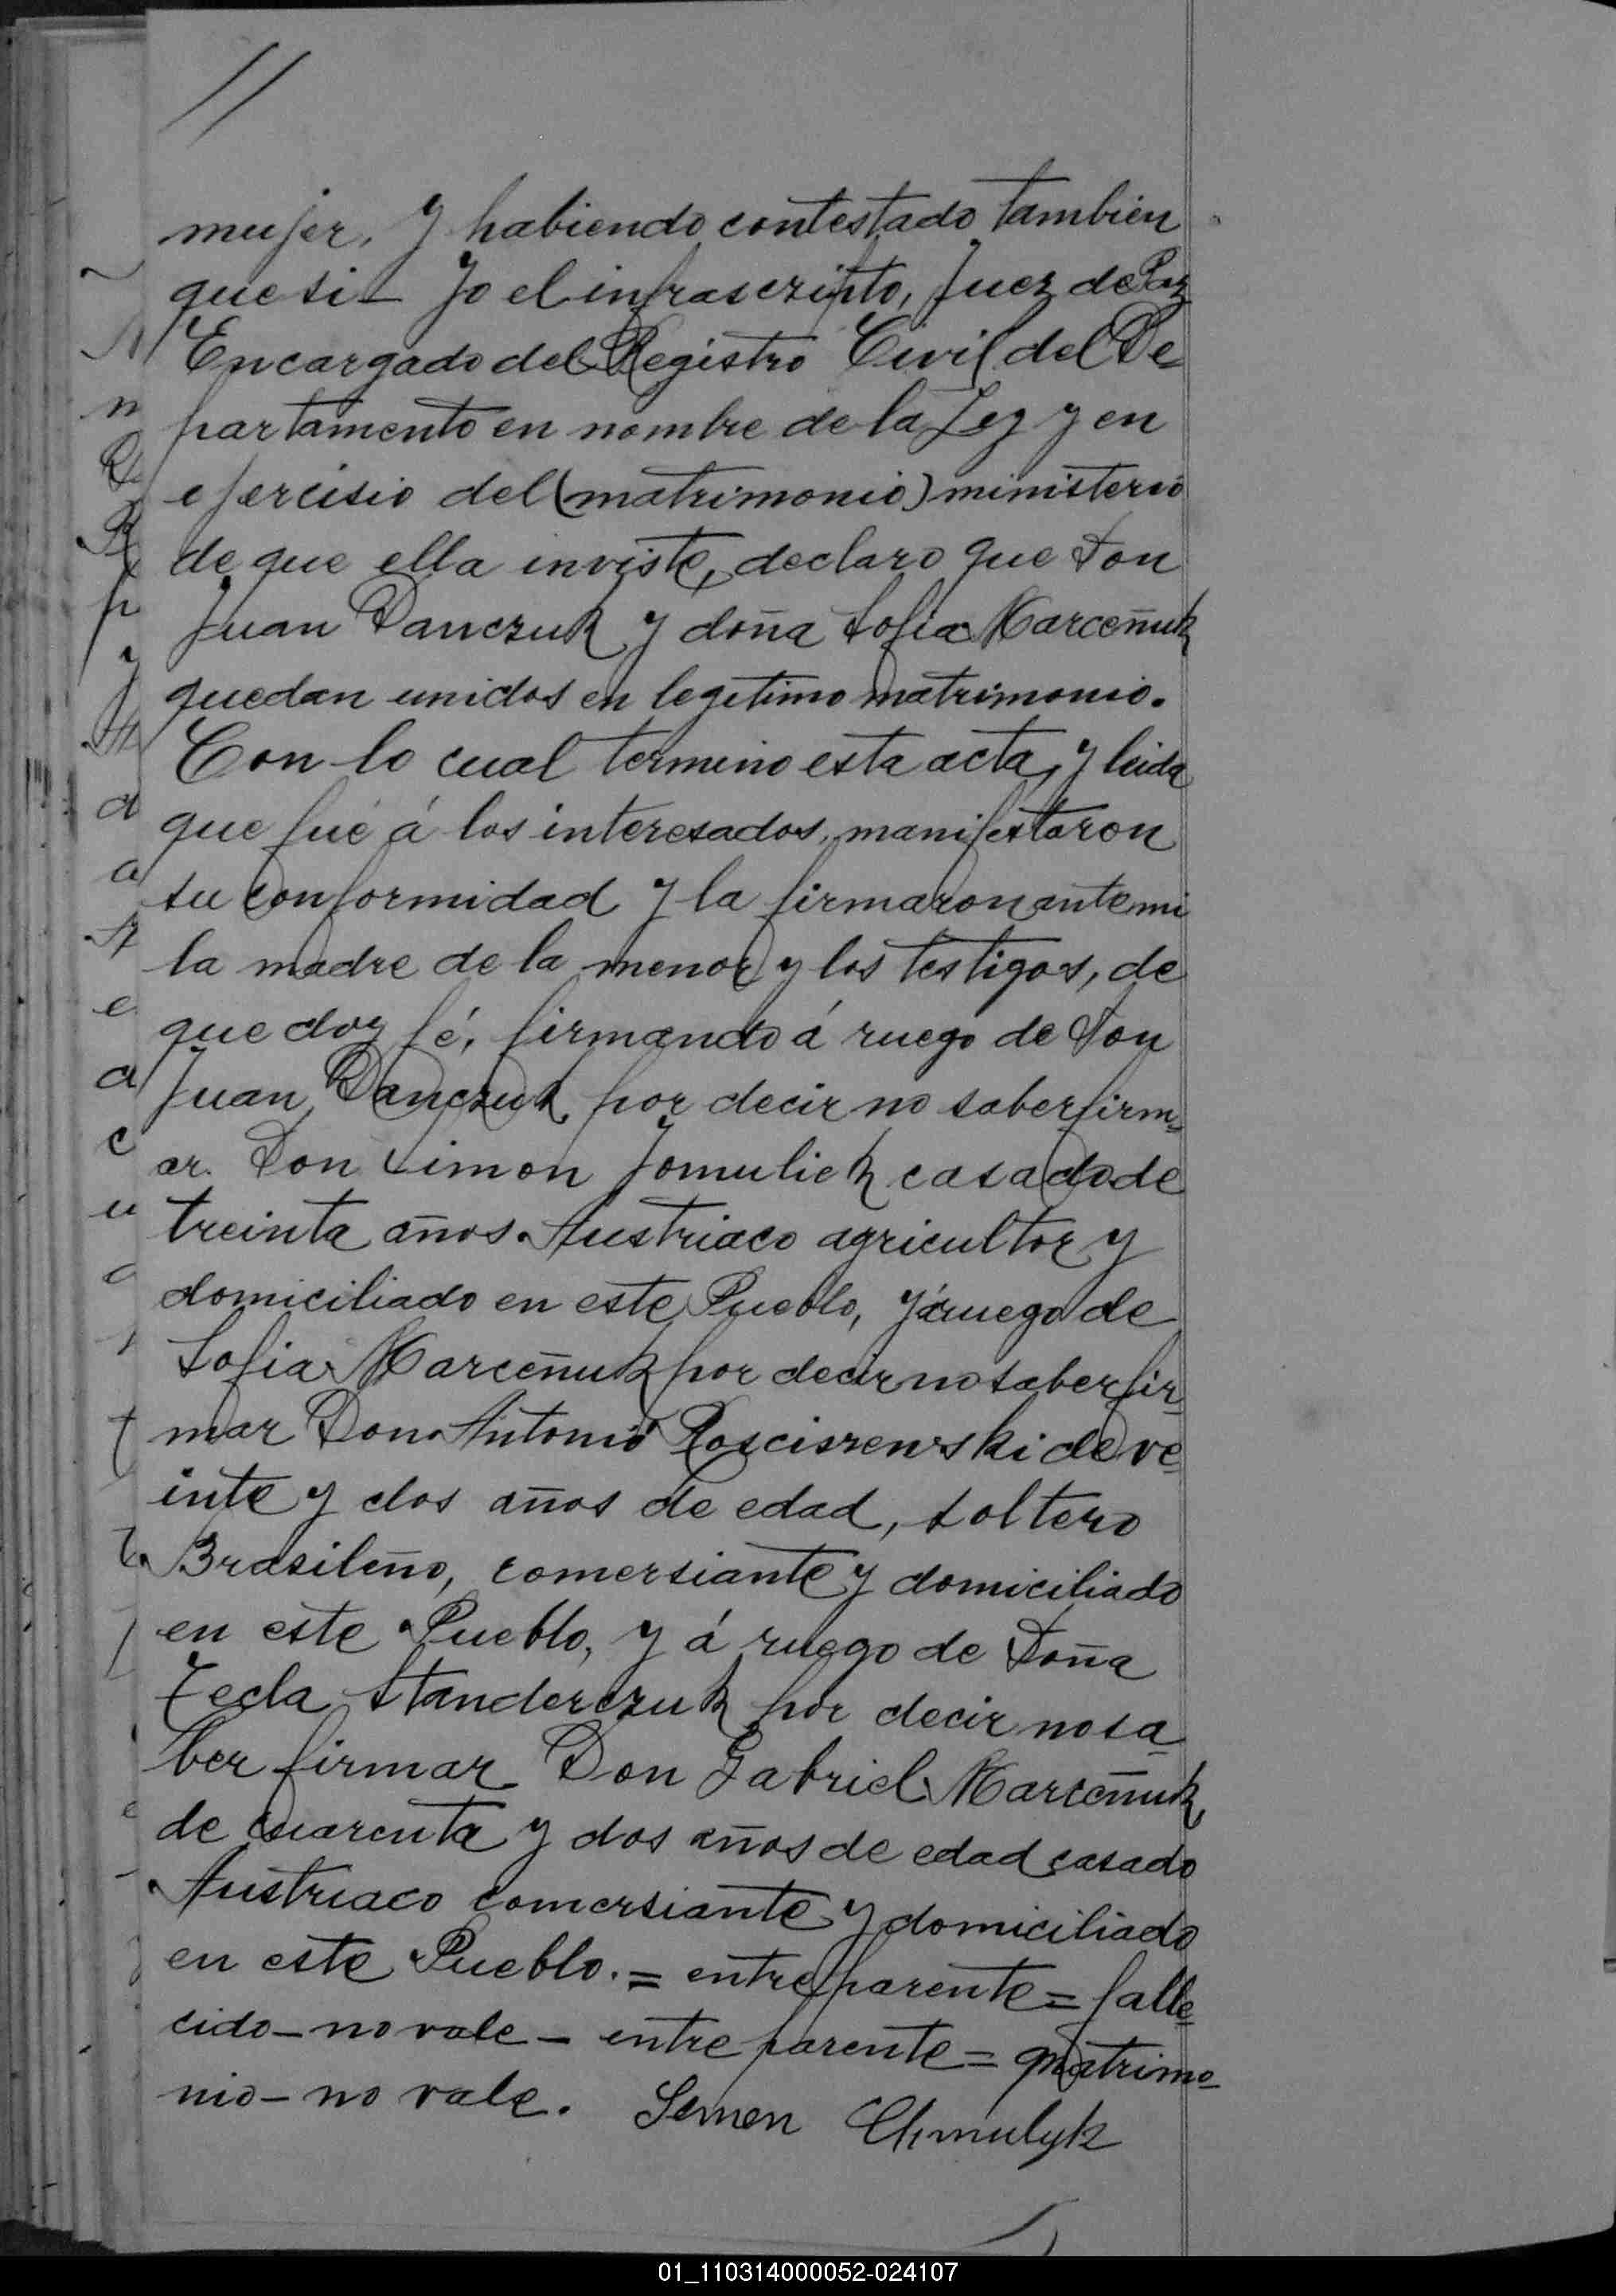 //
mujer. Y habiendo contestado tambien
que si - Yo el infrascripto, Juez de Paz
Encargado del Registro Civil del De-
partamento en nombre de la Ley y en
ejercisio del (matrimonio) ministerio
de que ella inviste, declaro que Don
Juan Danczuk y doña Sofia Marceñuk
quedan unidos en legitimo matrimonio.
Con lo cual termino esta acta, y leida
que fué á los interesados, manifestaron
su conformidad y la firmaron ante mi
la madre de la menor y los testigos, de
que doy fé, firmando á ruego de Don
Juan Danczuk por decir no saber firm-
ar. Don Simon Jomuliek casado de
treinta años Austriaco agricultor y
domiciliado en este Pueblo, y á ruego de
Sofia Marceñuk por decir no saber fir-
mar Don Antonio Rosciszewski de ve-
inte y dos años de edad, soltero
Brasileño, comersiante y domiciliado
en este Pueblo, y á ruego de Doña
Tecla Standerczuk por decir no sa-
ber firmar Don Gabriel Marceñuk,
de cuarenta y dos años de edad casado
Austriaco comersiante y domiciliado
en este Pueblo. = entre parente = falle-
cido - no vale - entre parente = matrimo-
nio - no vale. Semen Chmulyk
01_110314000052-024107